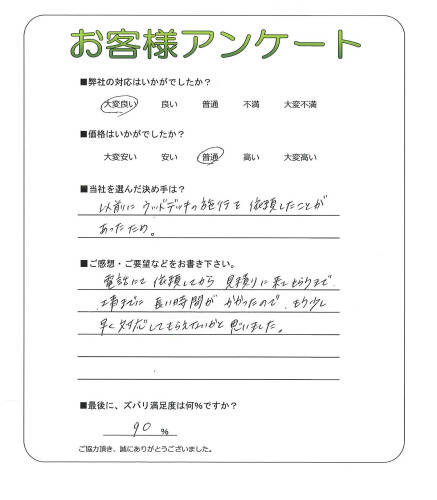 お客様アンケート
■弊社の対応はいかがでしたか？
大変良い 良い 普通 不満 大変不満
■価格はいかがでしたか？
大変安い 安い 普通 高い 大変高い
■当社を選んだ決め手は？
以前にウッドデッキの施行を依頼したことが
あったため。
■ご感想・ご要望などをお書き下さい。
電話にて依頼してから見積りに来てもらうまで、
工事までに長い時間がかかったので、もう少し
早く対応してもらえないかと思いました。
■最後に、ズバリ満足度は何％ですか？
90 ％
ご協力頂き、誠にありがとうございました。